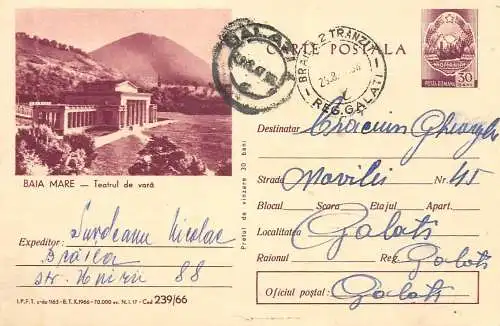 CARTE POSTALA
POSTA ROMANA
30
GALATI
BRAILA 2 TRANZIT
REG. GALATI
BAIA MARE — Teatrul de vară
Prețul de vînzare 30 bani
Destinatar Crăciun Gheorghe
Strada Movilei Nr. 45
Blocul Scara Etajul Apart.
Localitatea Galați
Raionul Reg. Galați
Oficiul poștal: Galați
Expeditor: Surdeanu Nicolae
Brăila
str. Unirii 88
I.P.F.T. c-da 1163 - B.T. X.1966 - 70.000 ex. N.I. 17 - Cod 239/66